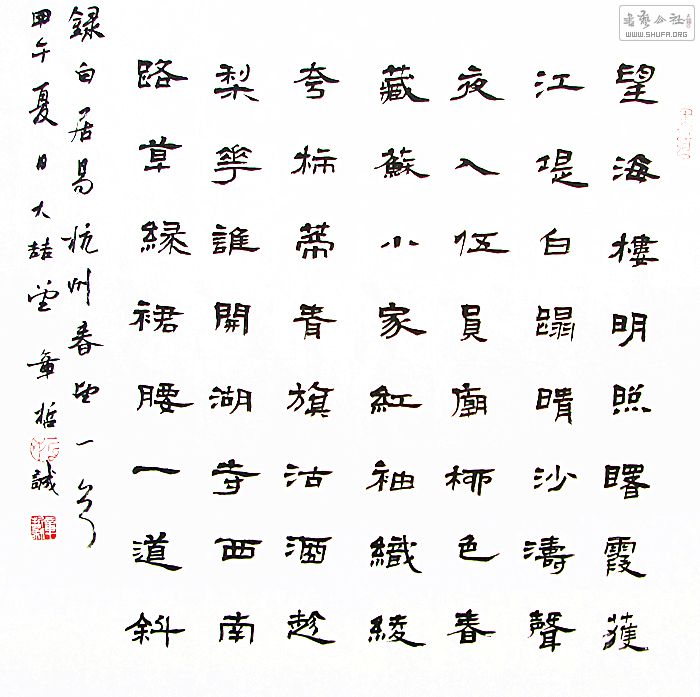 望海樓明照曙霞護
江堤白蹋晴沙濤聲
夜入伍員廟柳色春
藏蘇小家紅袖織綾
夸柿蒂青旗沽酒趁
梨華誰開湖寺西南
路草緑裙腰一道斜
録白居易杭州春望一首
甲午夏日大喆堂 章哲誠
书艺公社
WWW.SHUFA.ORG